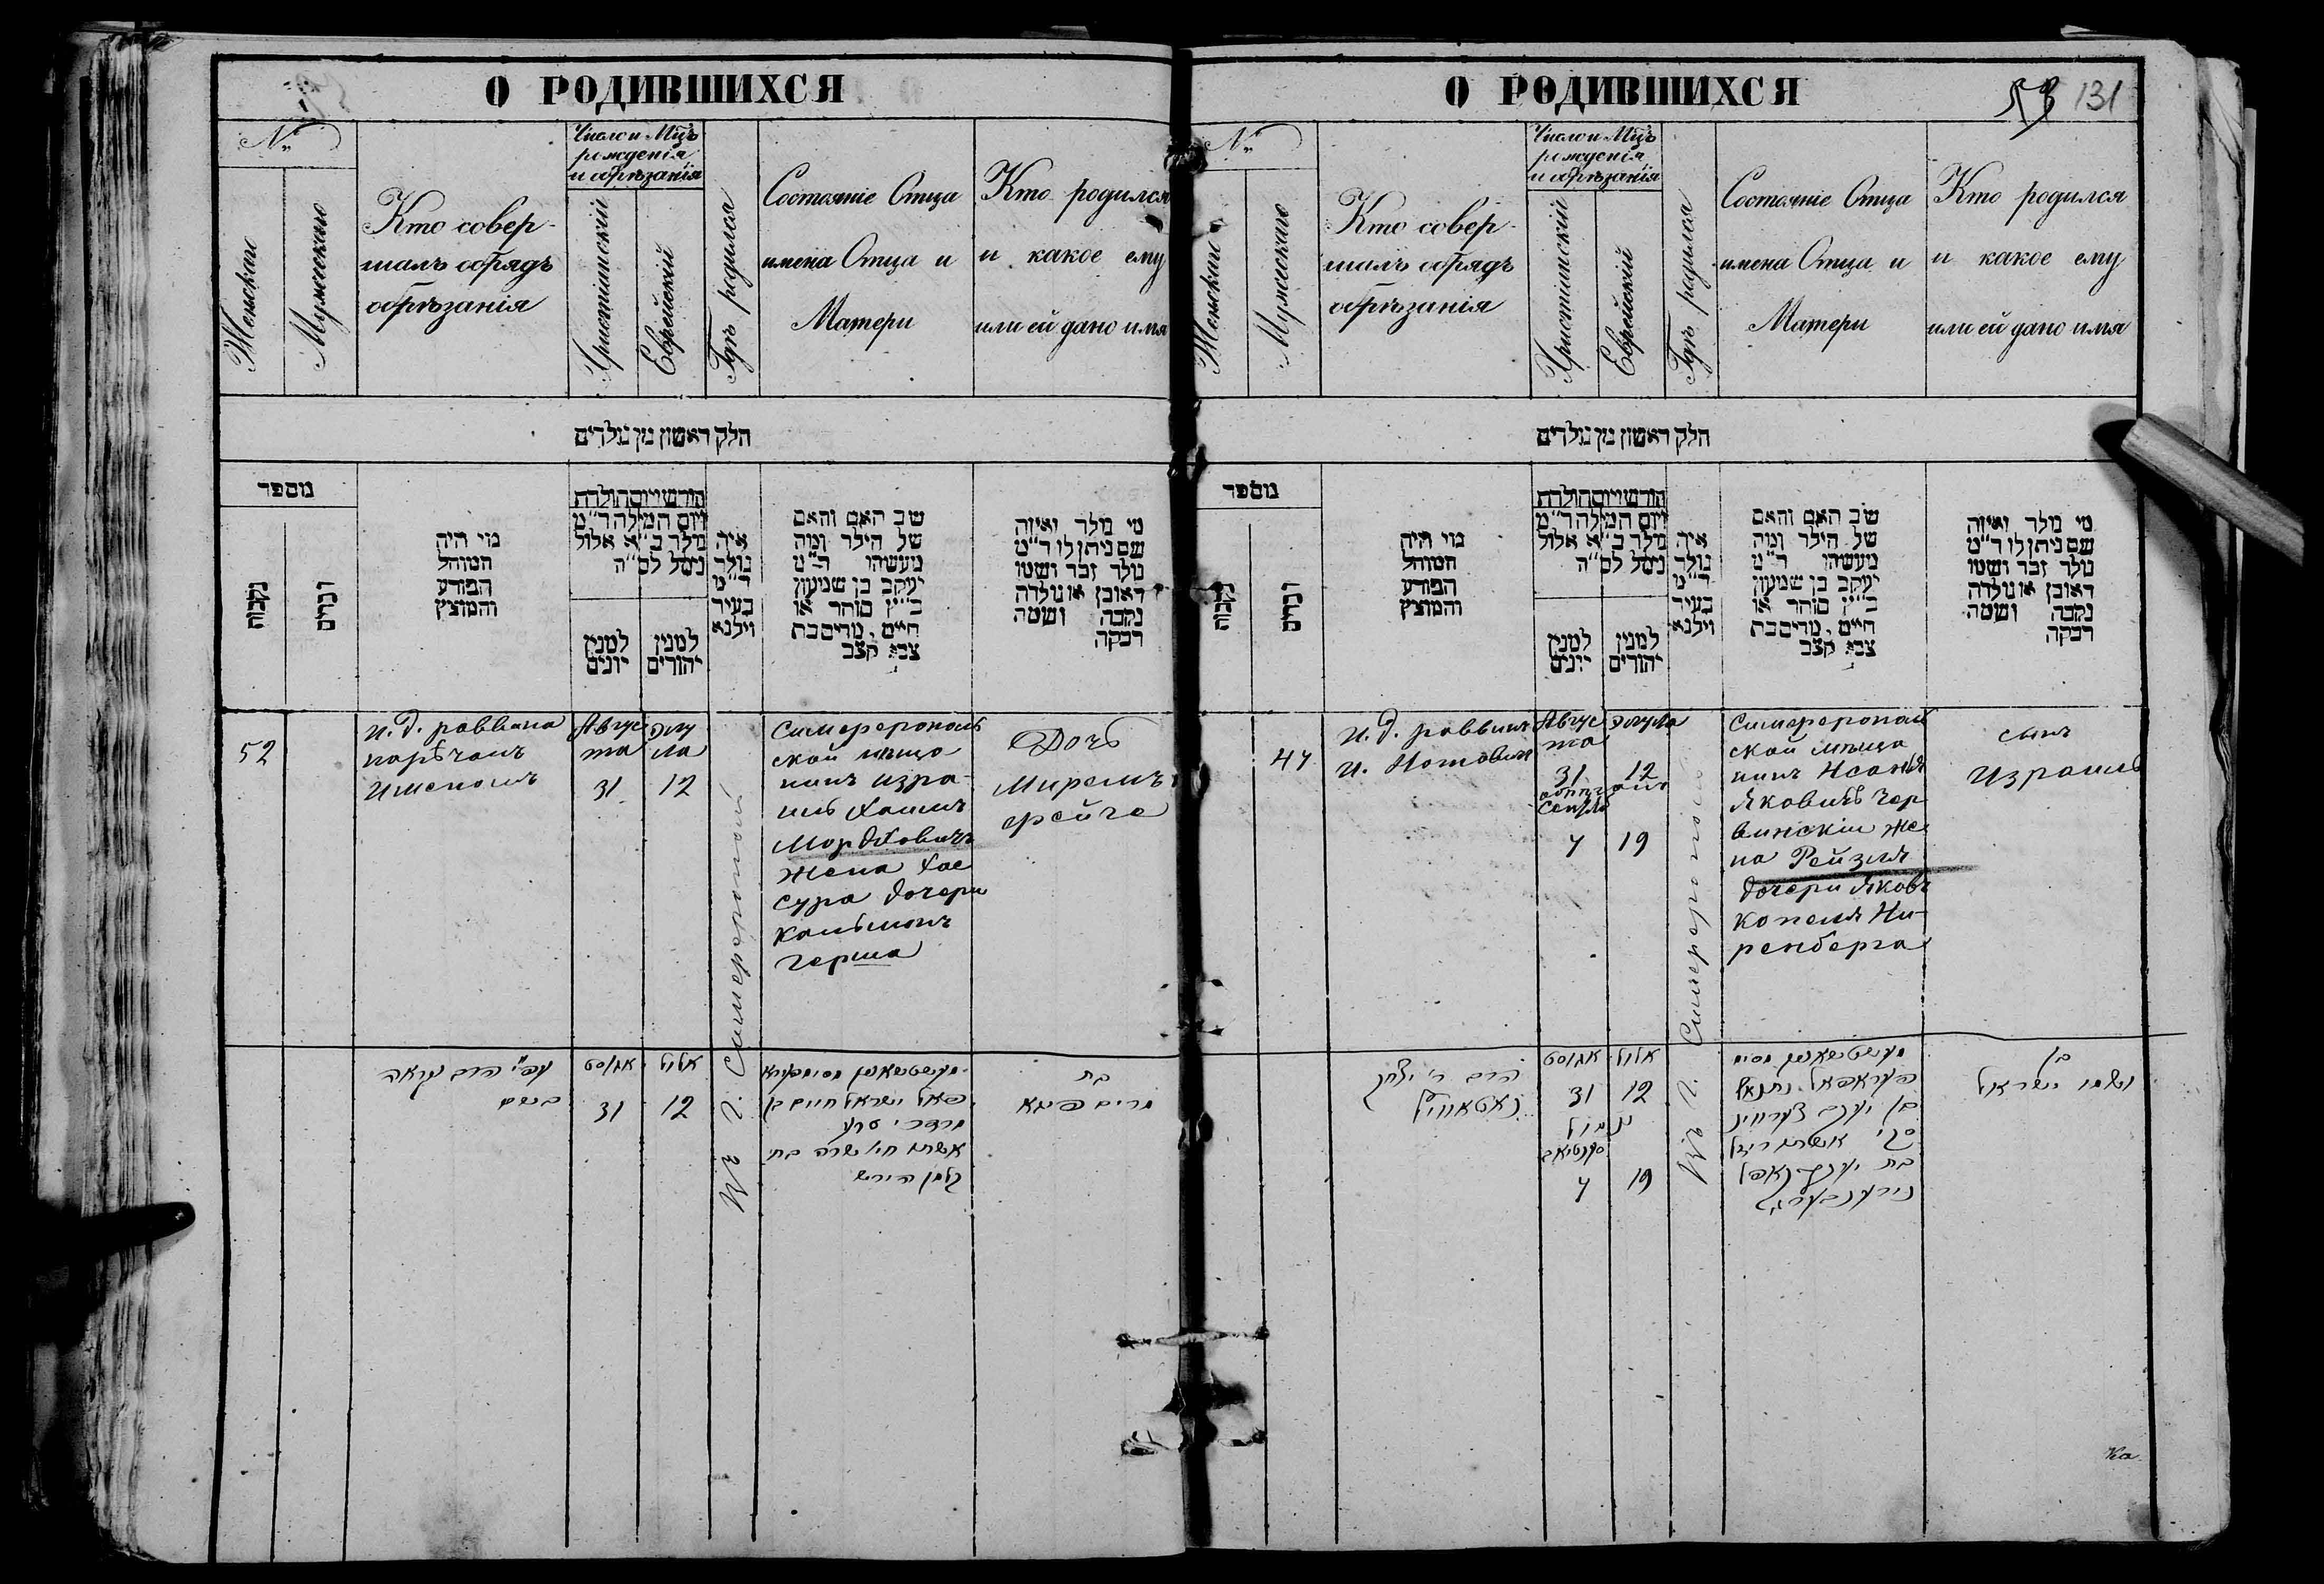 О РОДИВШИХСЯ
№
Женскаго
Мужескаго
Кто совер-
шалъ обрядъ
обрѣзанія
Число и Мцъ
рожденія
и обрѣзанія
Христіанскій
Еврейскій
Гдѣ родился
Состояніе Отца
имена Отца и
Матери
Кто родился
и какое ему
или ей дано имя
חלק ראשון מן נולדים
מספר
נקבות
זכרים
מי היה
המוהל
הפורע
והמוצץ
חודש ויום הולדת
ויום המילה ד"מ
נולד כ"א אלול
נימל לס"ה
למנין
יונים
למנין
יהודים
איה
נולד
ד"מ
בעיר
וילנא
שב האם והאם
של הילד ומה
מעשהו ד"מ
יעקב בן שמעון
כ"ץ סוחר או
חיים, מרים בת
צבי קצב
מי נולד ואיזה
שם ניתן לו ד"מ
נולד זכר ושמו
ראובן או נולדה
נקבה ושמה
רבקה
52
и. д. раввина
нарѣчанъ
именемъ
Авгус
та
31
элу
ла
12
Въ г. Симферополѣ
Симферополь
ской мѣща
нинъ Изра-
иль Хаимъ
Мордковичъ
жена Хае
Сура дочери
Кальманъ
Герша
Дочь
Миремъ
Фейге
עפ"י הרב נקראה
בשם
אוגוסט
31
אלול
12
פאל ישראל חיים בן
מרדכי
אשתו חי' שרה בת
קלמן הירש
בת
מרים פייגא
О РОДИВШИХСЯ
53 131
№
Женскаго
Мужескаго
Кто совер-
шалъ обрядъ
обрѣзанія
Число и Мцъ
рожденія
и обрѣзанія
Христіанскій
Еврейскій
Гдѣ родился
Состояніе Отца
имена Отца и
Матери
Кто родился
и какое ему
или ей дано имя
חלק ראשון מן נולדים
מספר
נקבות
זכרים
מי היה
המוהל
הפורע
והמוצץ
חודש ויום הולדת
ויום המילה ד"מ
נולד כ"א אלול
נימל לס"ה
למנין
יונים
למנין
יהודים
איה
נולד
ד"מ
בעיר
וילנא
שב האם והאם
של הילד ומה
מעשהו ד"מ
יעקב בן שמעון
כ"ץ סוחר או
חיים, מרים בת
צבי קצב
מי נולד ואיזה
שם ניתן לו ד"מ
נולד זכר ושמו
ראובן או נולדה
נקבה ושמה
רבקה
47
И. д. раввинъ
И. Нотовичъ
Авгус
та
31
7
элула
12
19
Въ г. Симферополѣ
Симферополь
ской мѣща
нинъ
Яковичъ Чер
винскій же
на Рейзля
дочери Яковъ
Копеля Ни-
ренберга
сынъ
Израиль
הרב ר' יצחק
נאטאוויץ
אוגוסט
31
נימול
7
אלול
12
19
בן יעקב
אשתו רייזל
בת יעקב קאפל
נירענבערג
בן
ושמו ישראל
Ка